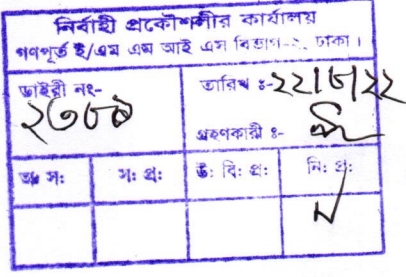 নির্বাহী প্রকৌশলীর কার্যালয়
গণপূর্ত ই/এম এম আই এস বিভাগ-২, ঢাকা।
ডাইরী নং-
তারিখ ঃ-২২/৮/২২
২৩৮৯
গ্রহণকারী ঃ-
স: প্র:
উ: বি: প্র:
নি: প্র: